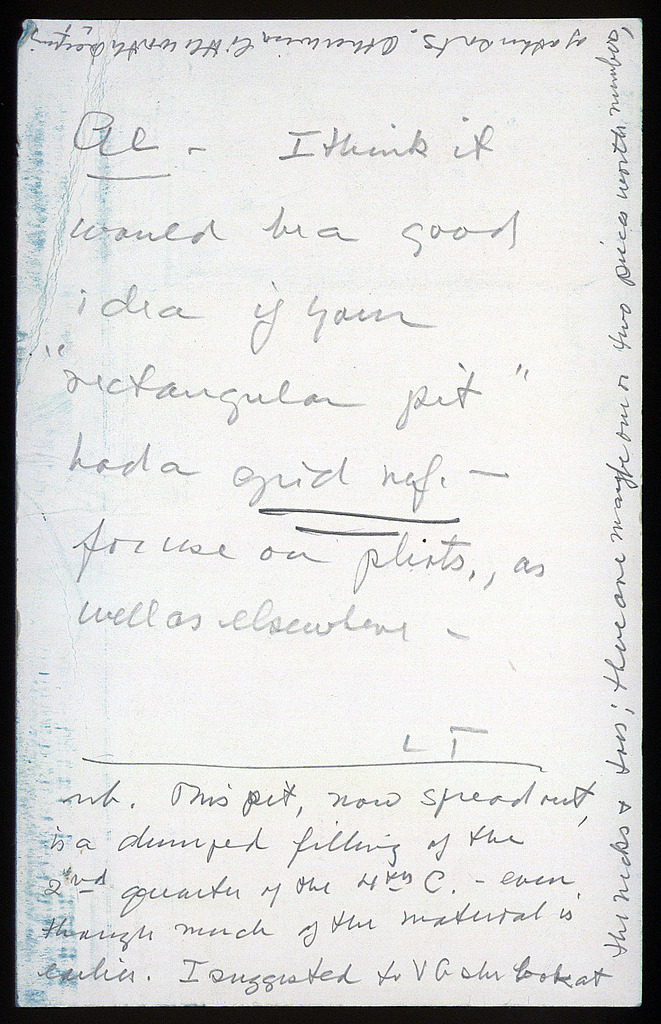 Al - I think it
would be a good
idea if your
"rectangular pit"
had a grid ref. -
for use on photos., as
well as elsewhere -
LT
nb. This pit, now spread out,
is a dumped filling of the
2nd quarter of the 4th C. - even
though much of the material is
earlier. I suggested to VG she look at
the necks & toes; there are maybe one or two pieces worth number,
of other sorts. Otherwise little worth keeping